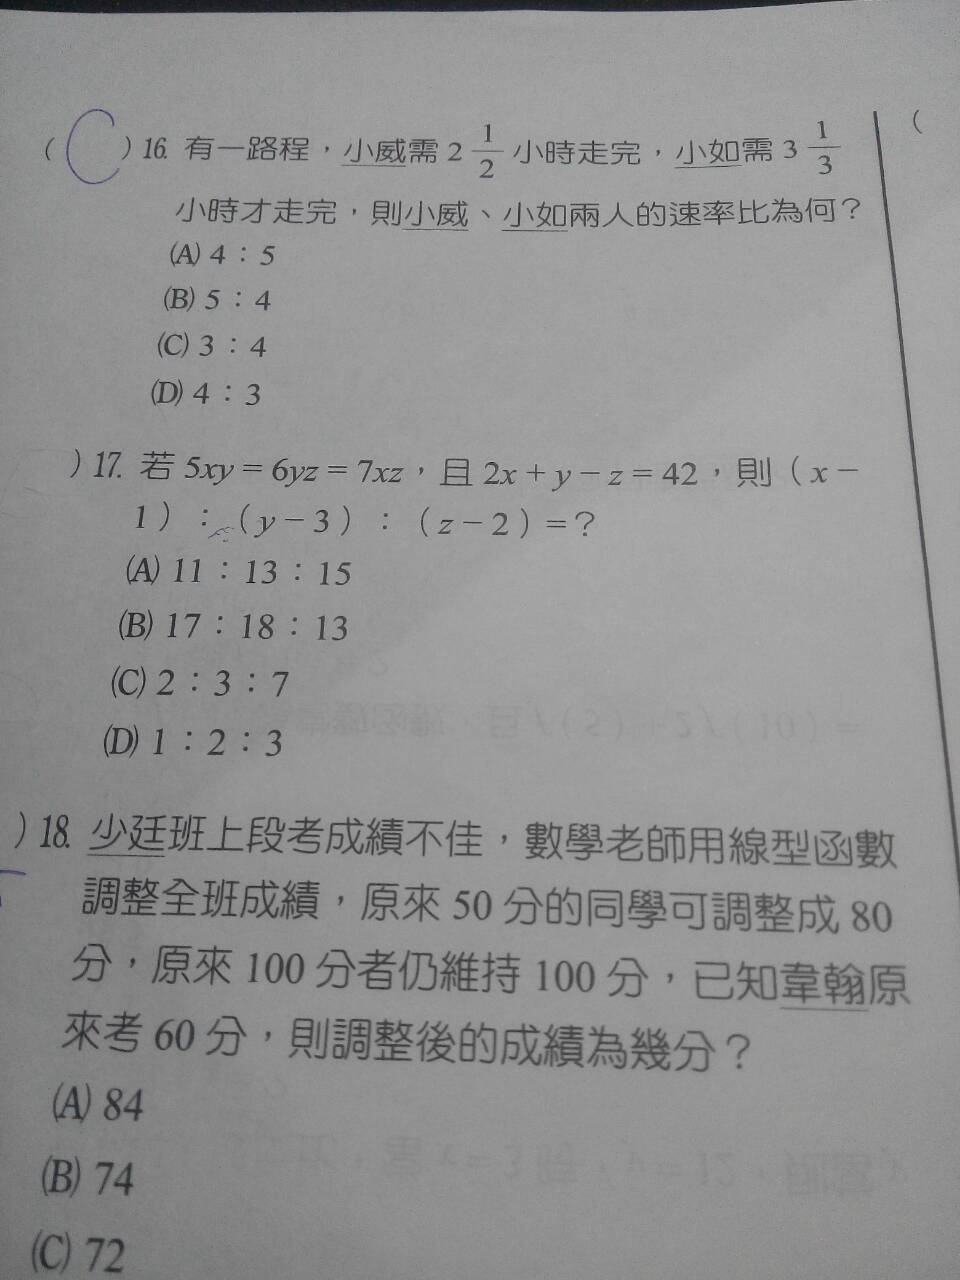 ( C ) 16. 有一路程，小威需 2 1/2 小時走完，小如需 3 1/3
小時才走完，則小威、小如兩人的速率比為何？
(A) 4：5
(B) 5：4
(C) 3：4
(D) 4：3
) 17. 若 5xy = 6yz = 7xz，且 2x + y − z = 42，則（x −
1）：（y − 3）：（z − 2）=？
(A) 11：13：15
(B) 17：18：13
(C) 2：3：7
(D) 1：2：3
) 18. 少廷班上段考成績不佳，數學老師用線型函數
調整全班成績，原來 50 分的同學可調整成 80
分，原來 100 分者仍維持 100 分，已知韋翰原
來考 60 分，則調整後的成績為幾分？
(A) 84
(B) 74
(C) 72
(